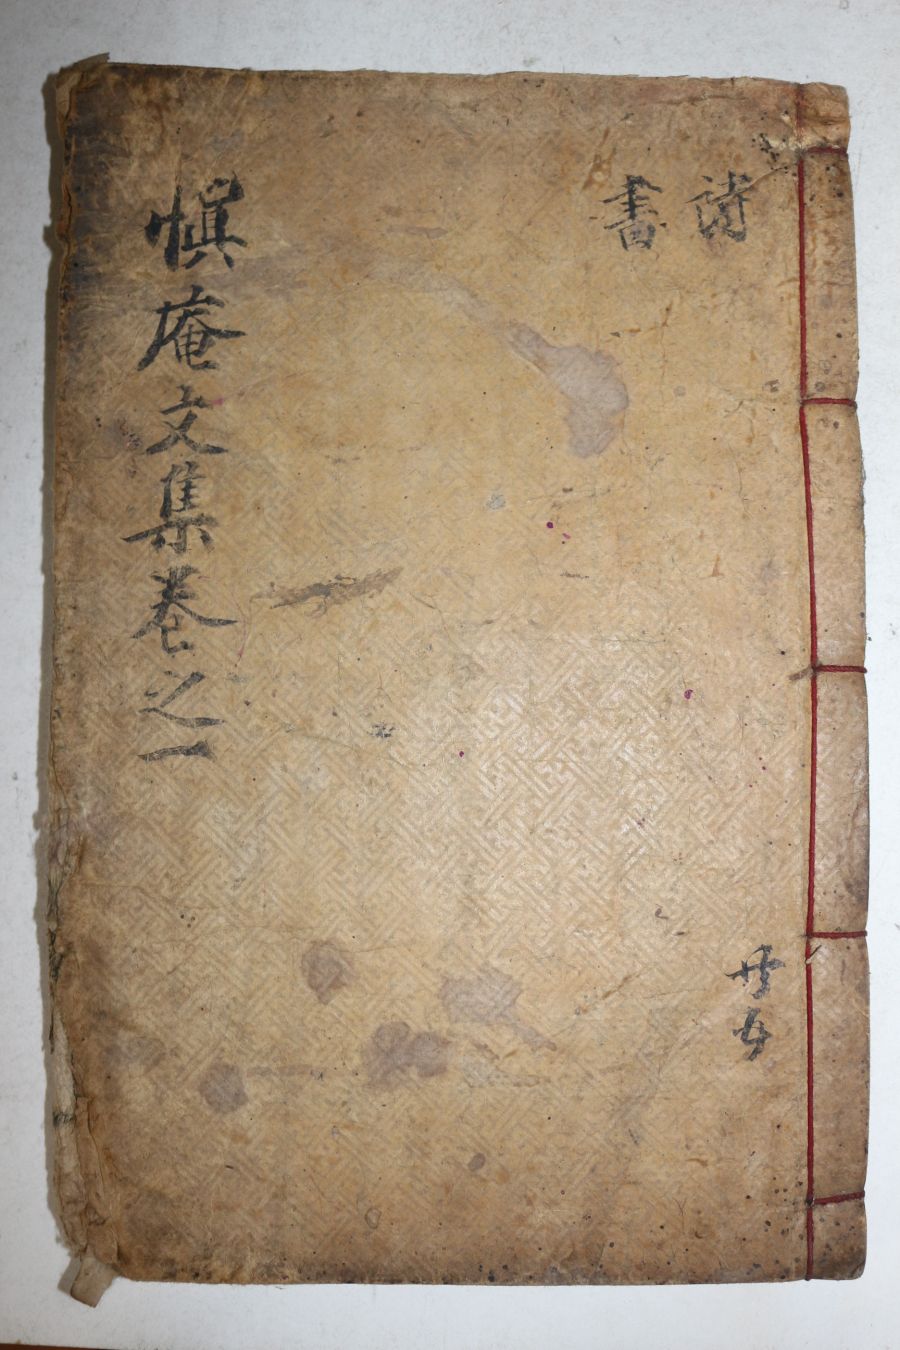 詩
書
愼庵文集卷之一
共五